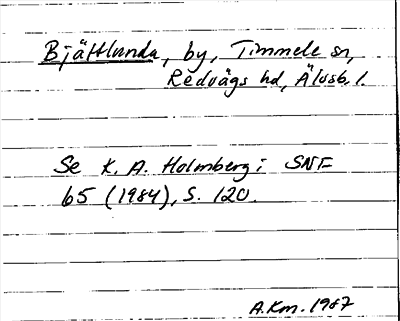 Bjättlunda, by, Timmele sn,
Redvägs hd, Älvsb. l.
Se K. A. Holmberg i SNF
65 (1984), S. 120.
A.Km. 1987